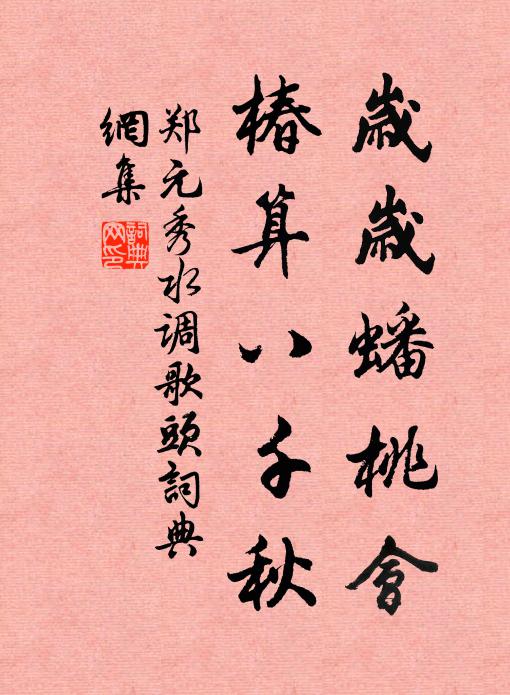 歲歲蟠桃會
椿算八千秋
郑元秀水调歌頭詞典
網集
詞典网印